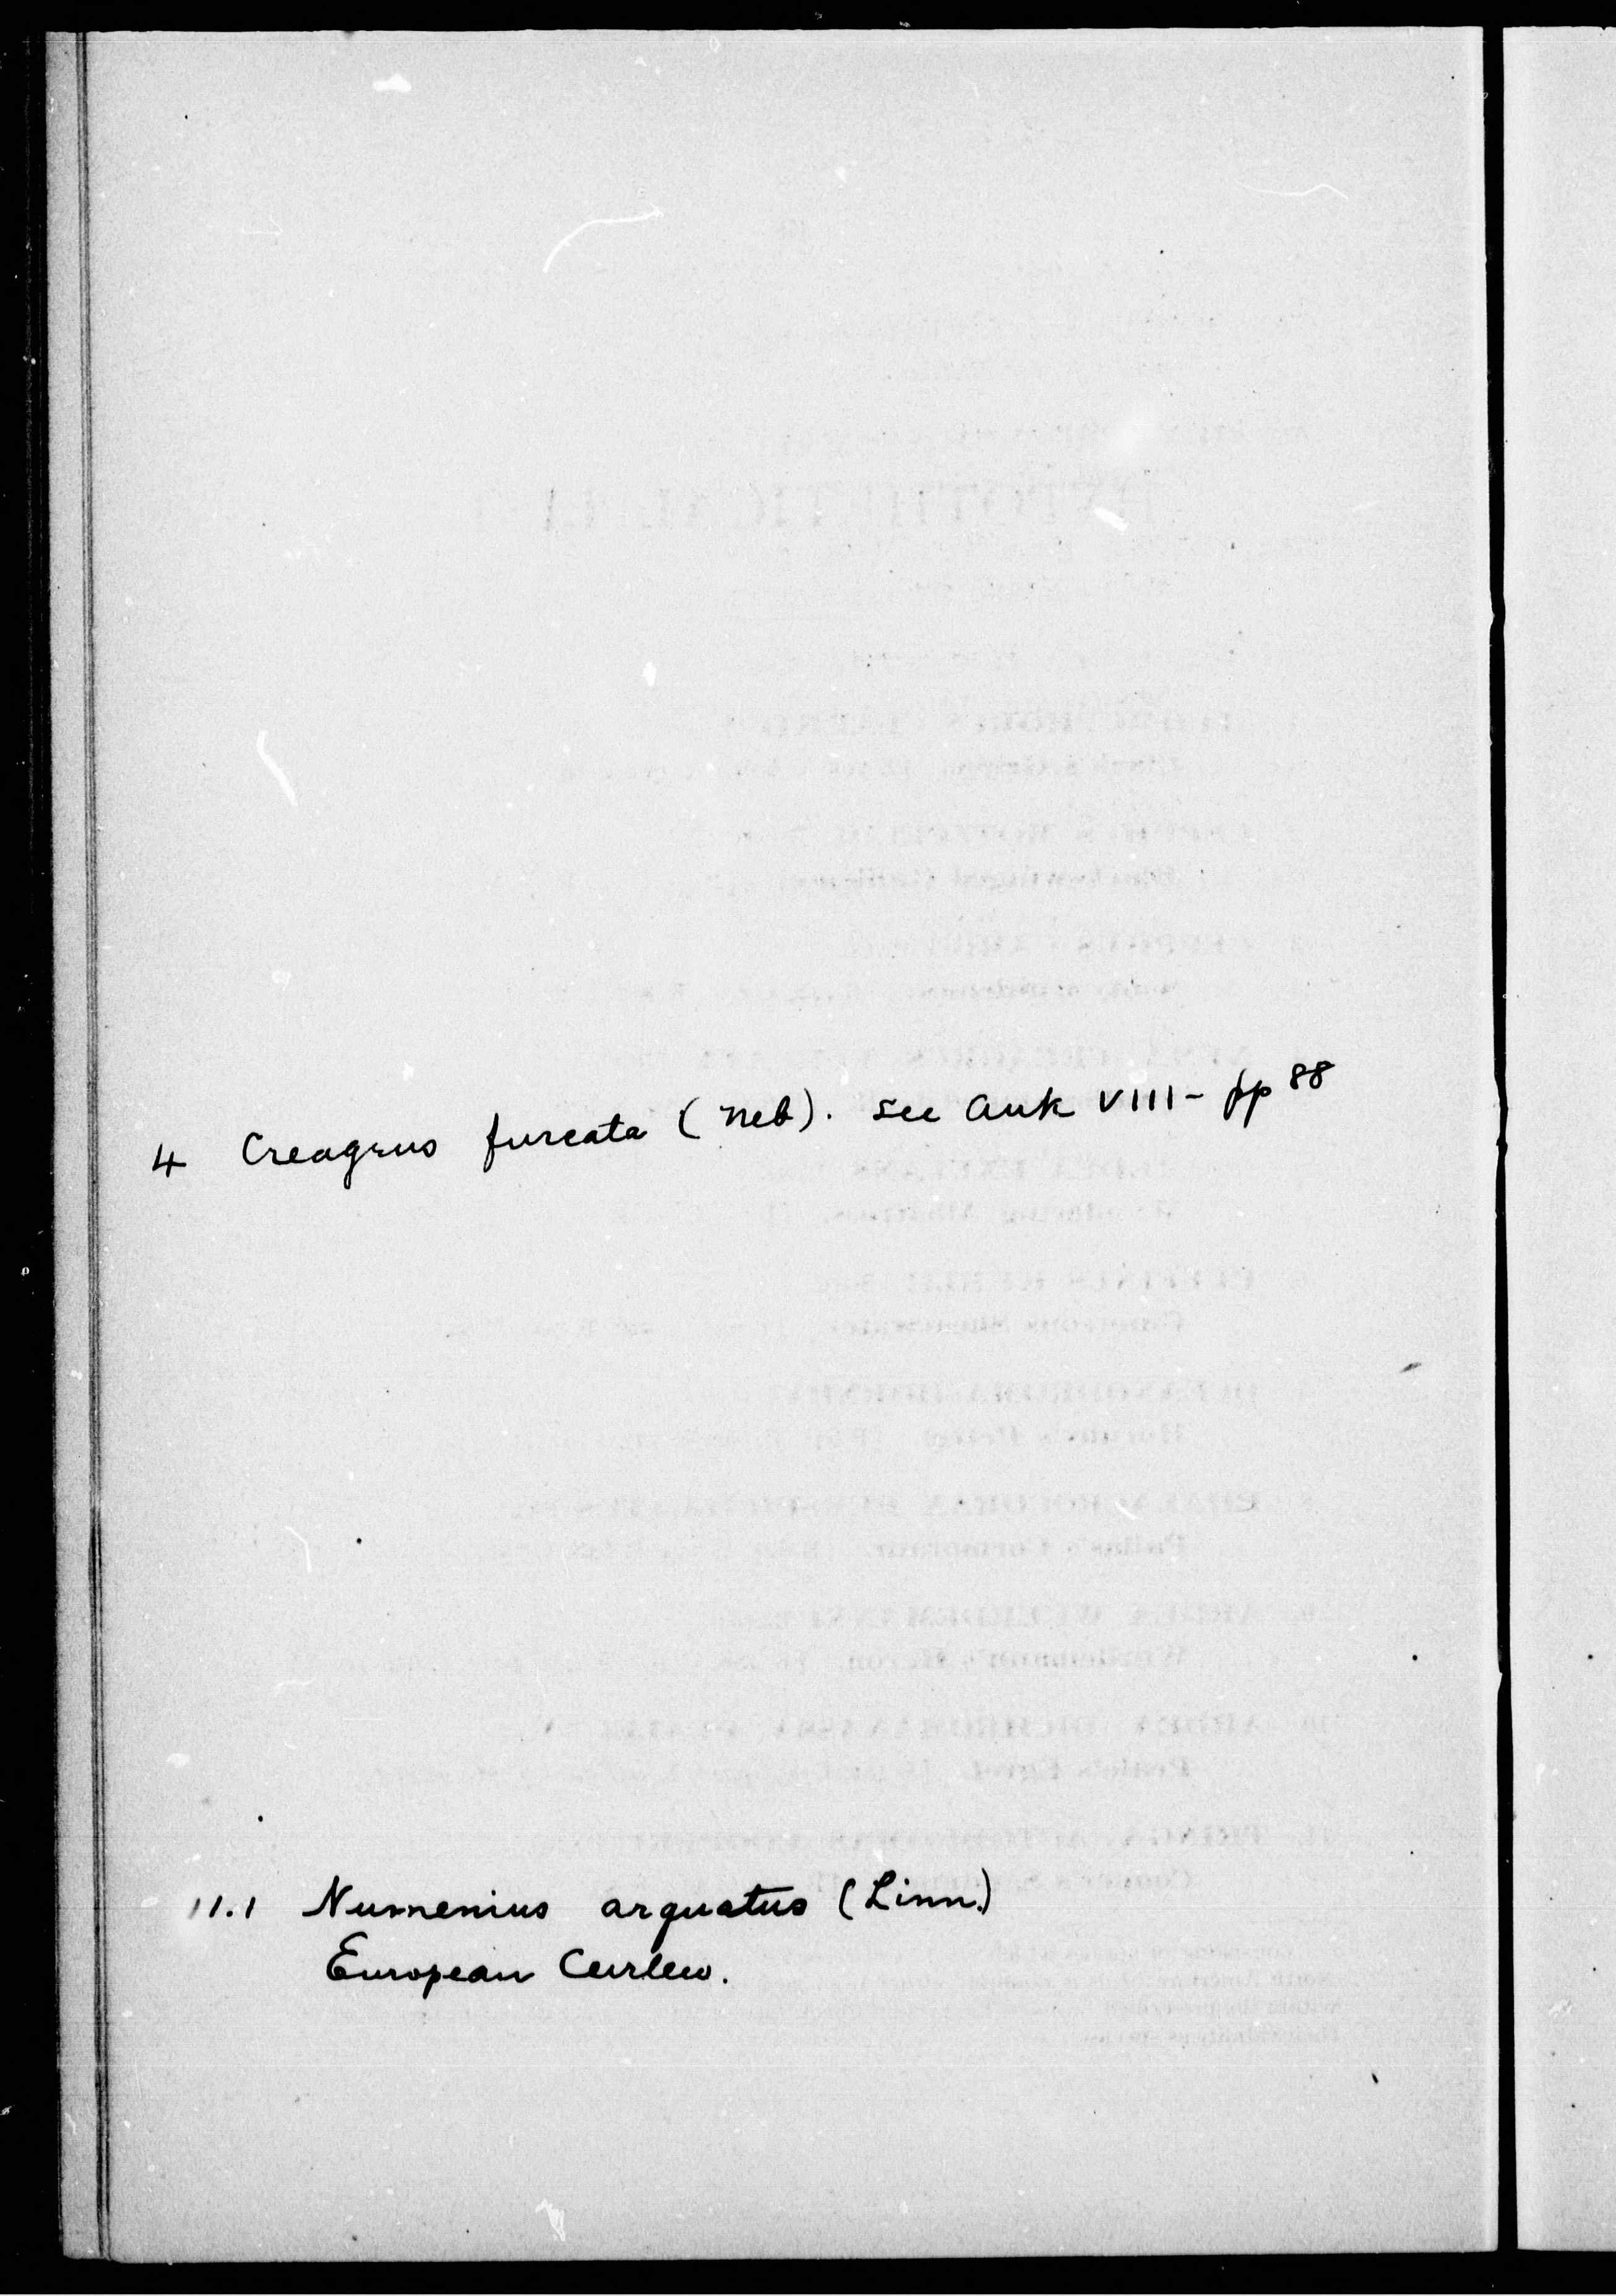 4 Creagrus furcata (Neb). See Auk VIII- pp 88
11.1 Numenius arquatus (Linn.)
European Curlew.